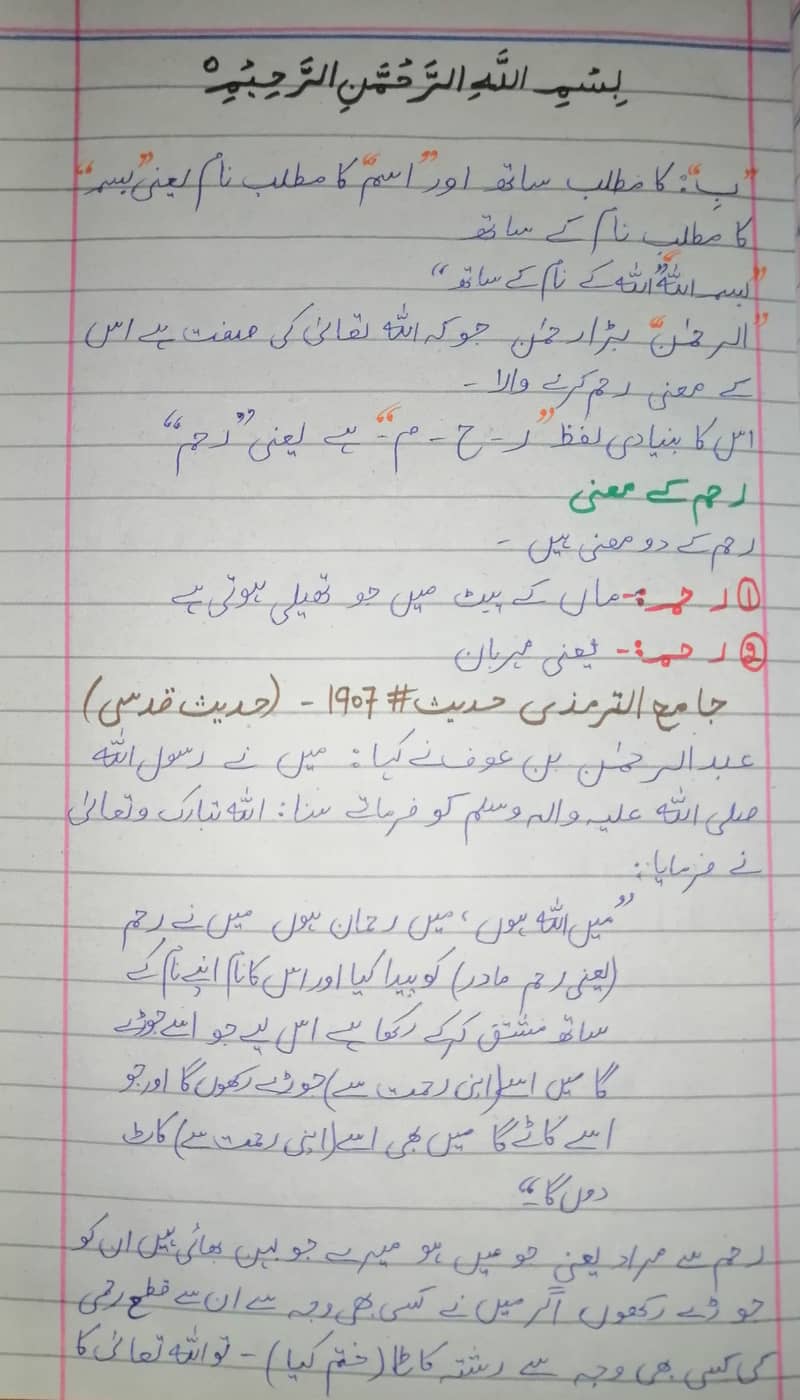 بِسْمِ اللَّهِ الرَّحْمَٰنِ الرَّحِيمِ ○
”بِ“: کا مطلب ساتھ اور ”اسم“ کا مطلب نام یعنی ”بسم“
کا مطلب نام کے ساتھ
”بسم اللہ“ ”اللہ کے نام کے ساتھ“
”الرحمٰن“ بڑا رحمٰن جو کہ اللہ تعالیٰ کی صفت ہے اس
کے معنی رحم کرنے والا -
اس کا بنیادی لفظ ”ر - ح - م -“ ہے یعنی ”رحم“
رحم کے معنی
رحم کے دو معنی ہیں -
① رحم:- ماں کے پیٹ میں جو تھیلی ہوتی ہے
② رحم:- یعنی مہربان
جامع الترمذی حدیث # 1907 - (حدیث قدسی)
عبدالرحمٰن بن عوف نے کہا: میں نے رسول اللہ
صلی اللہ علیہ والہ وسلم کو فرماتے سنا: اللہ تبارک وتعالیٰ
نے فرمایا:
”میں اللہ ہوں، میں رحمان ہوں میں نے رحم
(یعنی رحم مادر) کو پیدا کیا اور اس کا نام اپنے نام کے
ساتھ مشتق کرکے رکھا ہے اس لیے جو اسے جوڑے
گا میں اسے (اپنی رحمت سے) جوڑے رکھوں گا اور جو
اسے کاٹے گا میں بھی اسے (اپنی رحمت سے) کاٹ
دوں گا -“
رحم سے مراد یعنی جو میں ہو میرے جو بہن بھائی ہیں ان کو
جوڑے رکھوں اگر میں نے کسی بھی وجہ سے ان سے قطع رحمی
کی کسی بھی وجہ سے رشتہ کاٹا (ختم کیا) - تو اللہ تعالیٰ کا